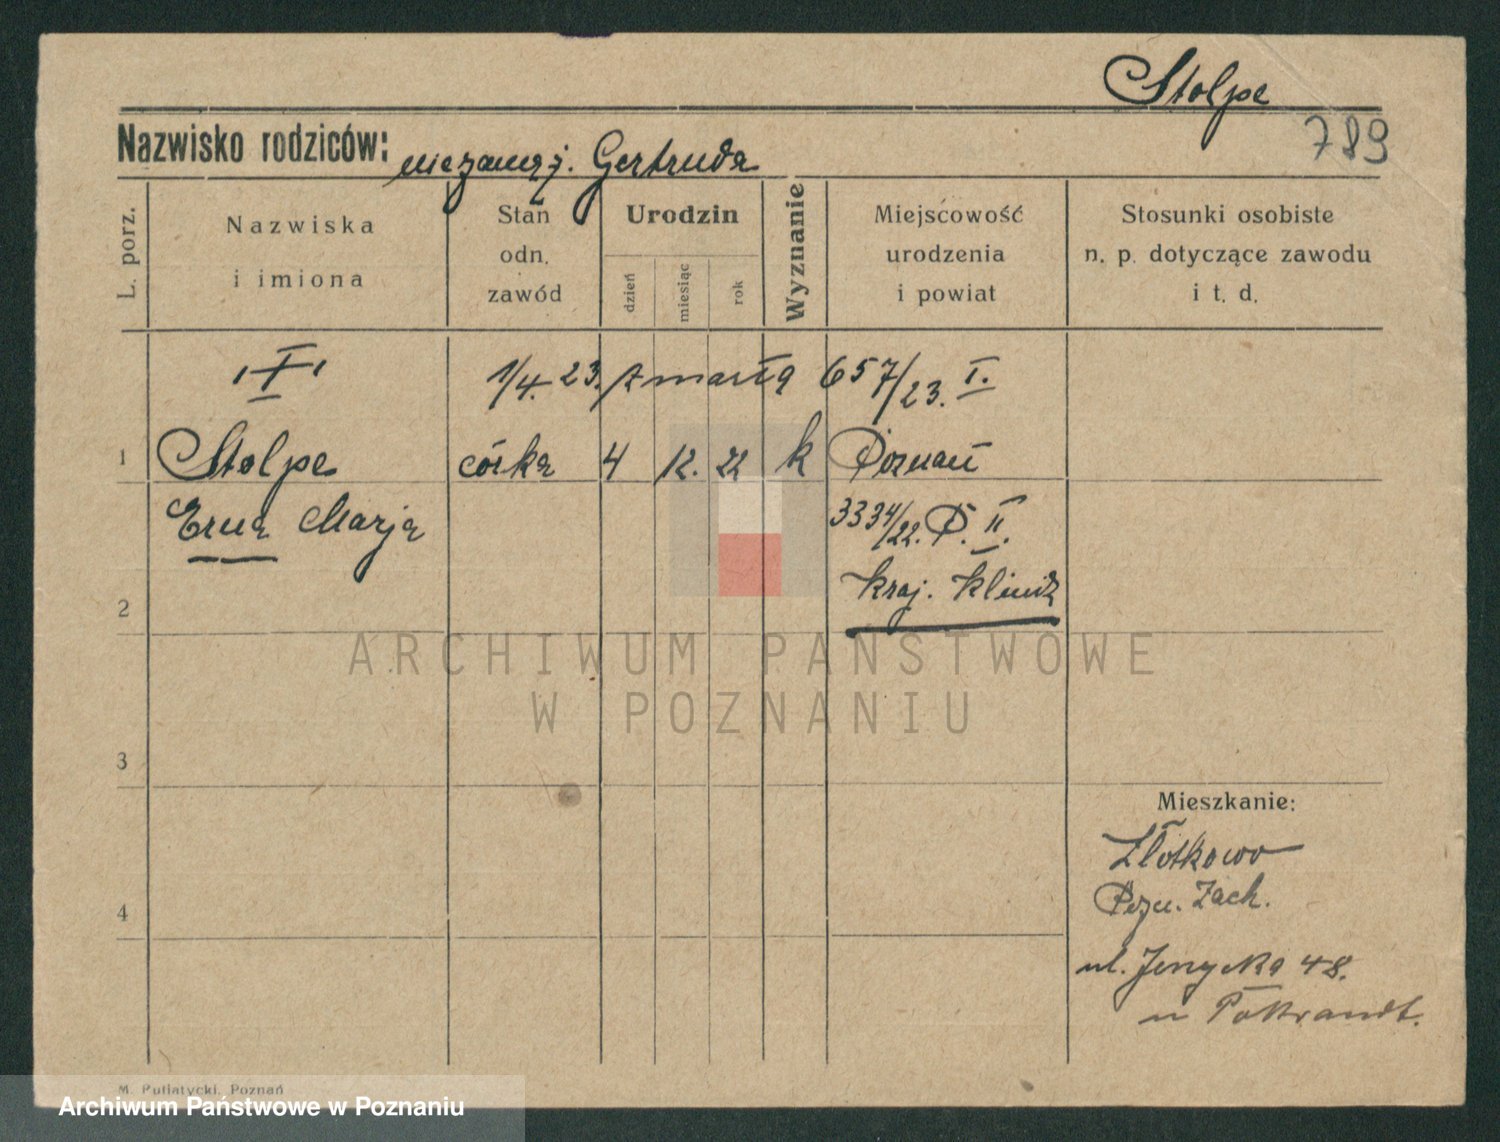 Stolpe
789
Nazwisko rodziców: niezamęż. Gertruda
L. porz.
Nazwiska
i imiona
Stan
odn.
zawód
Urodzin
dzień
miesiąc
rok
Wyznanie
Miejscowość
urodzenia
i powiat
Stosunki osobiste
n. p. dotyczące zawodu
i t. d.
1/4. 23. zmarła 657/23. I.
1 Stolpe córka 4 12. 22 k Poznań
Erna Marja 3334/22. P. II.
kraj. klinik
2
ARCHIWUM PAŃSTWOWE
W POZNANIU
3
Mieszkanie:
Złotkowo
Pozn. Zach.
4
ul. Jerzycka 48.
u Pokrandt.
M. Putiatycki, Poznań
Archiwum Państwowe w Poznaniu